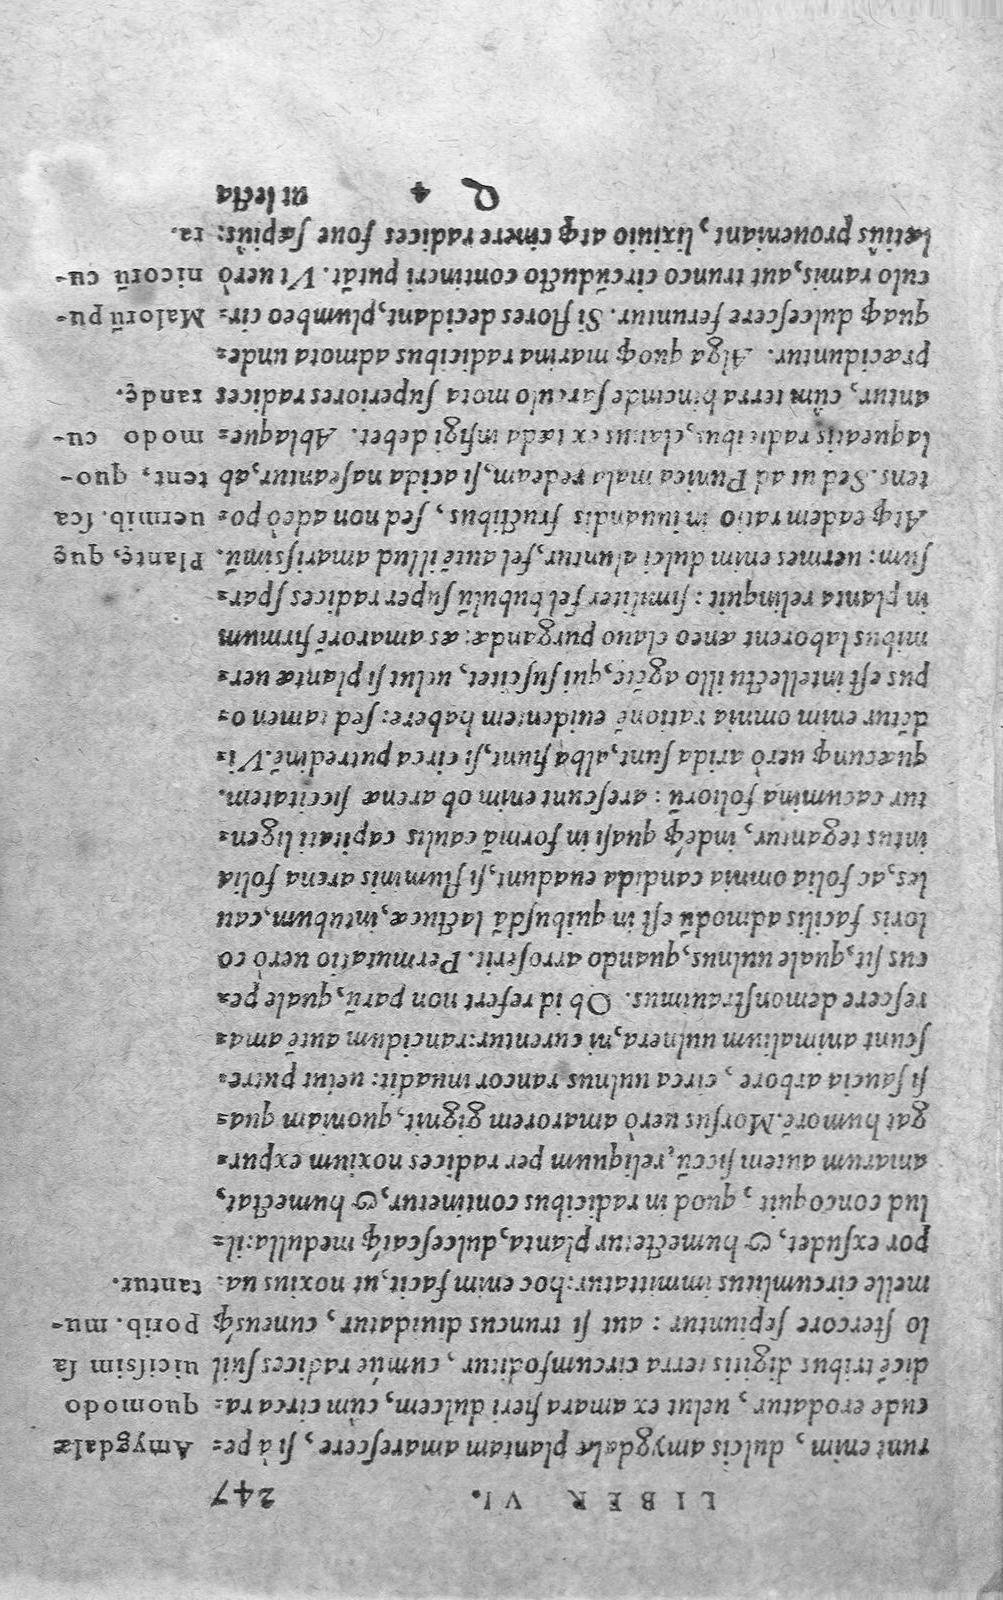 LIBER VI. 247
runt enim, dulcis amygdalæ plantam amarescere, si à pe=
cude erodatur, uelut ex amara fieri dulcem, cùm circa ra=
dicē tribus digitis terra circumfoditur, cumúe radices suil
lo stercore sepiuntur: aut si truncus diuidatur, cuneusq́;
melle circumlitus immittatur: hoc enim facit, ut noxius ua=
por exsudet, & humectetur planta, dulcescatq́; medulla: il=
lud concoquit, quod in radicibus continetur, & humectat,
amarum autem siccū, reliquum per radices noxium expur=
gat humorē. Morsus uerò amarorem gignit, quoniam qua=
si saucia arbore, circa uulnus rancor inuadit: uelut putre=
scunt animalium uulnera, ni curentur: rancidum autē ama=
rescere demonstrauimus. Ob id refert non parū, quale pe=
cus sit, quale uulnus, quando arroserit. Permutatio uerò co
loris facilis admodū est in quibusdā lactucæ, intubum, cau
les, ac folia omnia candida euadunt, si fluminis arena folia
intus tegantur, indeq́; quasi in formā caulis capitati ligen=
tur cacumina foliorū: arescunt enim ob arenæ siccitatem.
quæcunq; uerò arida sunt, alba fiunt, si circa putredinē. Vi=
dētur enim omnia rationē euidentem habere: sed tamen o=
pus est intellectu illo agēte, qui suscitet, uelut si plantæ uer=
mibus laborent æneo clauo purgandæ: æs amarorē firmum
in planta relinquit: similiter fel bubulū super radices spar=
sum: uermes enim dulci aluntur, fel autē illud amarissimū.
Atq; eadem ratio in iuuandis fructibus, sed non adeò po=
tens. Sed ut ad Punica mala redeam, si acida nascantur, ab
laqueatis radicibus, clauus ex tæda infigi debet. Ablaque=
antur, cùm terra hincinde sarculo mota superiores radices
præciduntur. Alga quoq; marina radicibus admota unde=
quaq; dulcescere feruntur. Si flores decidant, plumbeo cir=
culo ramis, aut trunco circūducto contineri putāt. Vt uerò
lætiùs proueniant, lixiuio atq; cinere radices foue sæpiùs:
Q 4 ut lecta
Amygdalæ
quomodo
uicissim sa
porib. mu-
tantur.
Plantę, quę
uermib. sca
tent, quo-
modo cu-
randę.
Malorū pu-
nicorū cu-
ra.